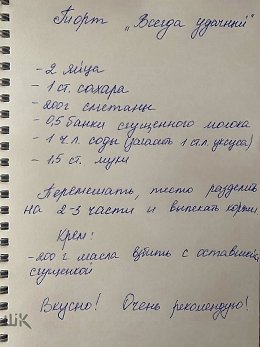 Торт „Всегда удачный"
- 2 яйца
- 1 ст. сахара
- 200г сметаны
- 0,5 банки сгущенного молока
- 1 ч.л. соды (гасить 1 ст.л. уксуса)
- 1,5 ст. муки
Перемешать, тесто разделить
на 2-3 части и выпекать коржи.
Крем:
- 200 г масла взбить с оставшейся
сгущенкой
Вкусно! Очень рекомендую!